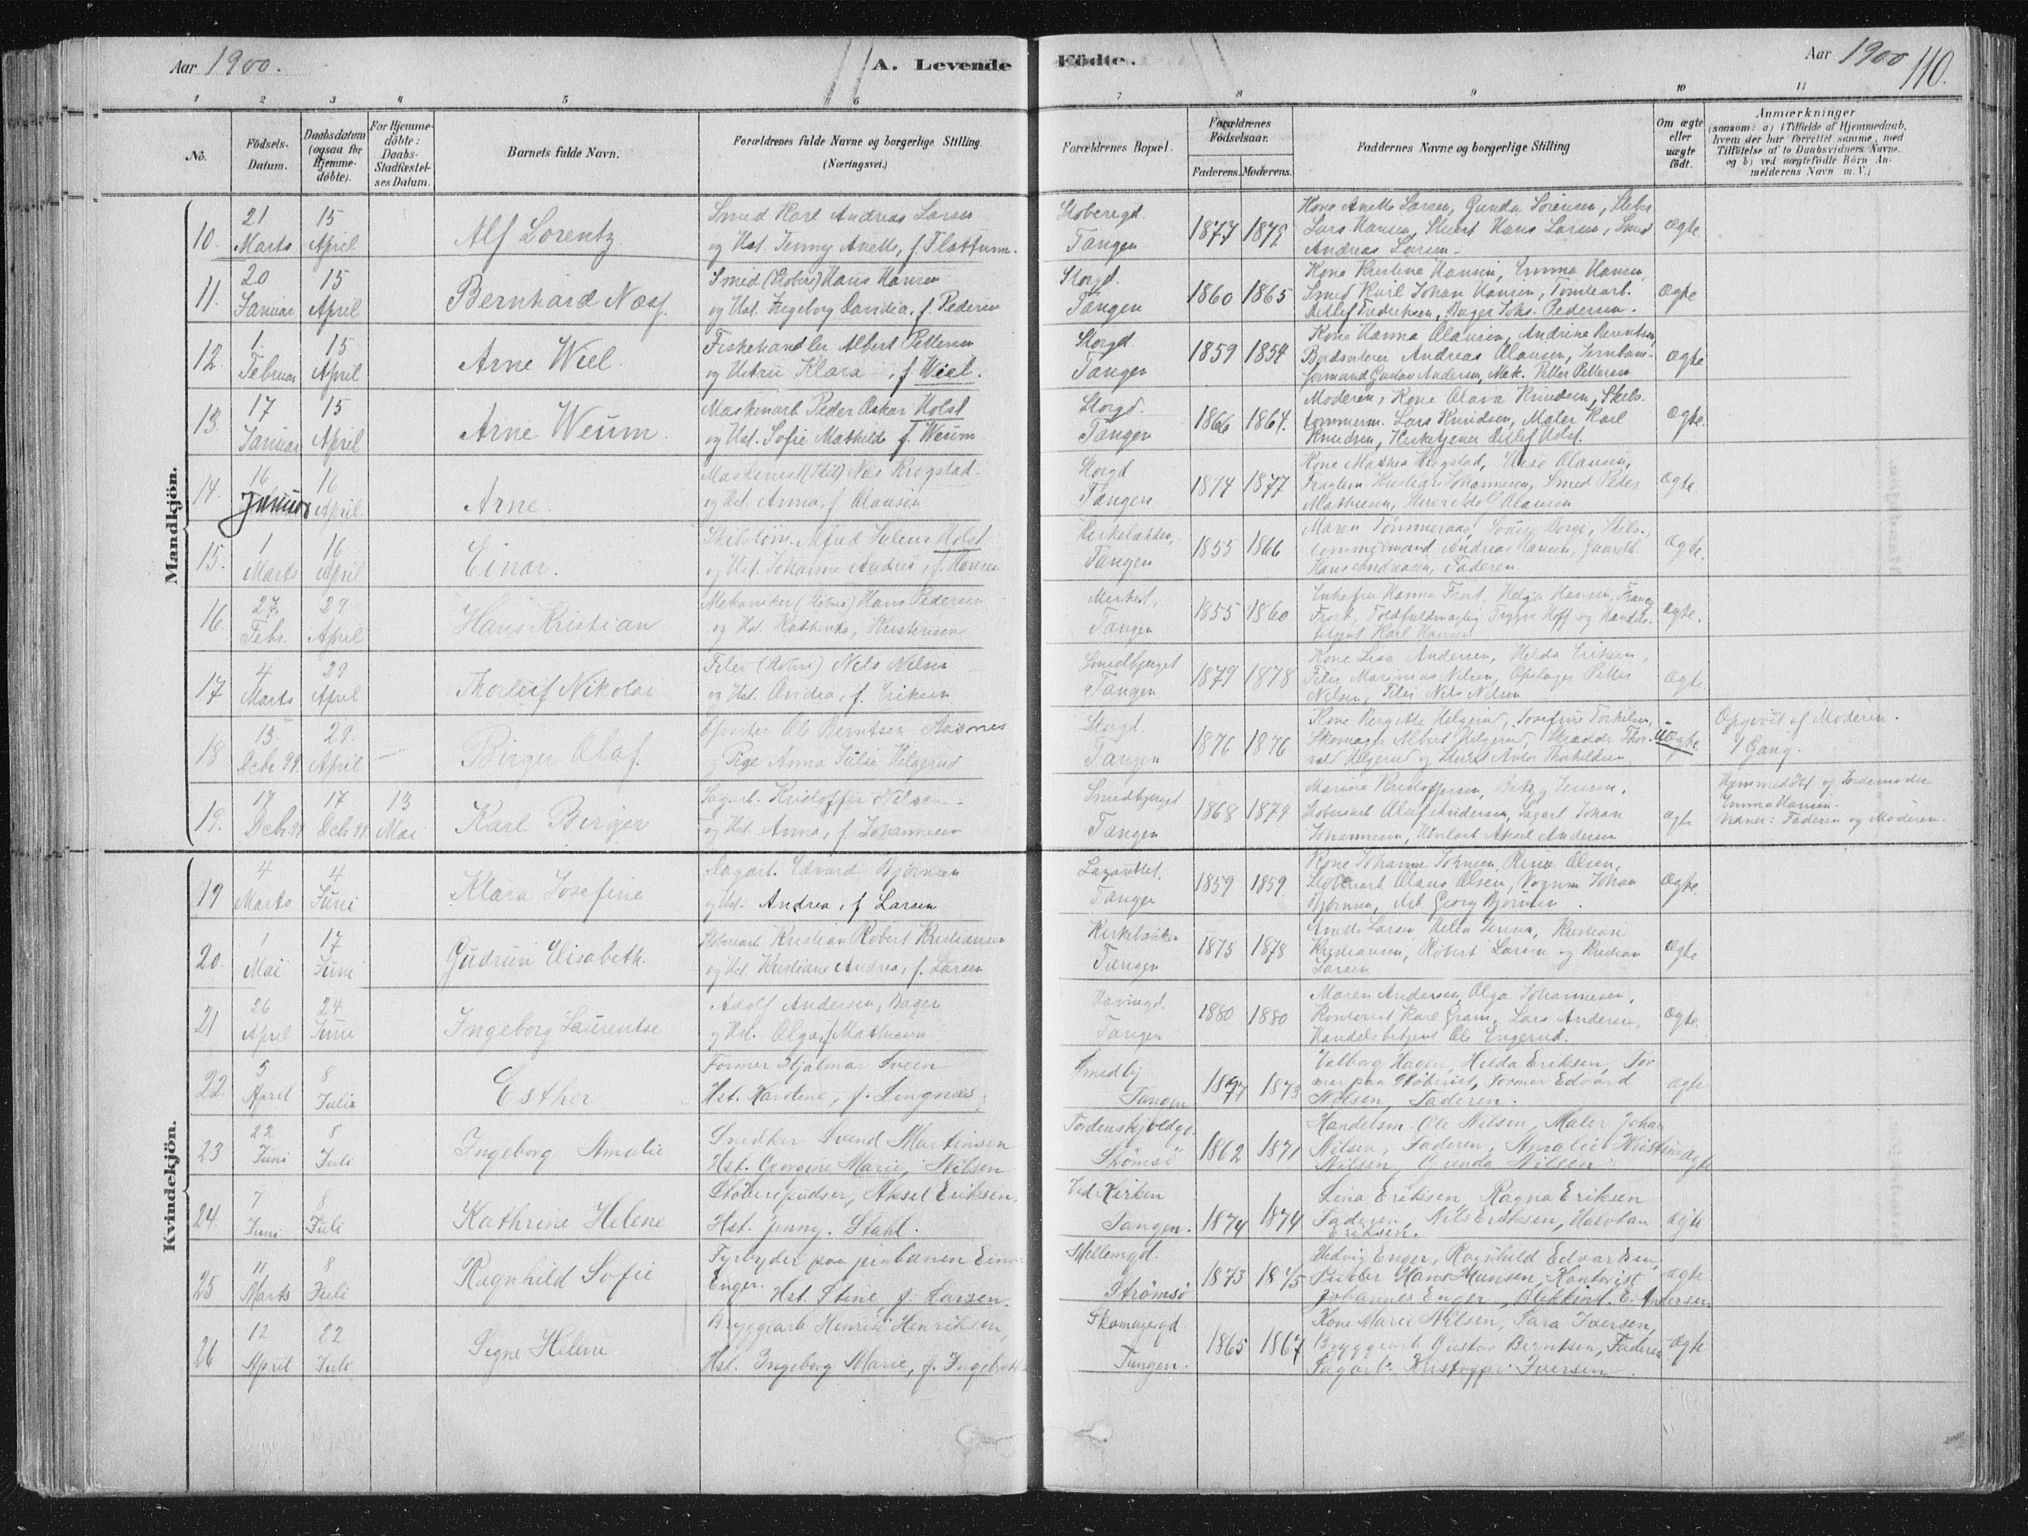 Aar 1900.
A. Levende Födte.
Aar 1900
110.
1 2 3 4 5 6 7 8 9 10 11
No.
Födsels-Datum.
Daabsdatum (ogsaa for Hjemme-döbte).
For Hjemme-döbte: Daabs-Stadfæstelses Datum.
Barnets fulde Navn.
Forældrenes fulde Navne og borgerlige Stilling.
(Næringsvei.)
Forældrenes Bopæl.
Forældrenes Födselsaar.
Faderens. Moderens.
Faddernes Navne og borgerlige Stilling
Om ægte eller uægte födt.
Anmærkninger
(saasom: a) i Tilfælde af Hjemmedaab, hvem der har forrettet samme, med Tilföielse af to Daabsvidners Navne, og b) ved uægtefödte Börn Anmelderens Navn m. V.)
Mandkjön.
10. 21 Marts 15 April
Alf Lorentz
Smed Karl Andreas Larsen
og Hst. Jenny Anette, f. Flattum.
Tangen
1877 1878
Kone Anette Larsen, Gunda Sörensen,
Lars Hansen, Hans Larsen, Smed
Andreas Larsen
Ægte
11. 20 Januar 15 April
Bernhard Næss
Smed Hans Hansen
og Hst. Ingeborg Davidia, f. Pedersen
Storgd. Tangen
1860 1865
Kone Kristina Hansen, Emma Hansen,
Smed Karl Johan Hansen, Tomtearb.
Ditlef Fredriksen, Bager Johs. Pedersen.
Ægte
12. 1 Februar 15 April
Arne Wiel.
Fiskehandler Albert Pettersen
og Hustru Klara, f. Wiel.
Storgd Tangen
1859 1854
Kone Hanna Olausen, Andrine Berntsen,
Andreas Olausen, Jernban-
formand Gustav Andersen, Mek. Petter Pettersen
Ægte
13. 17 Januar 15 April
Arne Weum.
Maskinarb Peder Oskar Holst
og Hst. Sofie Mathilde f. Weum
Storgd. Tangen
1866 1864.
Moderen, Kone Olava Knudsen, Skibs-
tommerm. Lars Knudsen, Maler Karl
Knudsen, Kirketjener Ditlef Holst.
Ægte.
14. 16 Januar 16 April
Arne.
Maskinist Nils Krogstad
og Hst. Anna, f. Olausen
Storgd Tangen
1874 1877
Kone Mathea Krogstad, Olausen,
Kristian Johannesen, Smed Peder
Mathisen, Olausen
Ægte
15. 1 Marts 16 April
Einar.
Alfred Julius Holst
og Hst. Johanne Andrea, f. Hansen
Kirkebakken, Tangen
1855 1866
Maren Tömmeraas, Louise Borge, Skibs-
tommermand Andreas Hansen,
Hans Andreasen, Faderen.
Ægte.
16. 27. Febr. 29 April
Hans Kristian
Mekaniker Hans Pedersen
og Hst. Kathinka, Kristensen
Tangen
1855 1860
Enkefru Hanna Frost, Helga Hansen,
Frost, Toldfuldmægtig Trygve Hoff og Handels-
betjent Karl Hansen
Ægte.
17 4 Marts 29 April
Thorleif Nikolai
Filer Nils Nilsen
og Hst. Ovidia, f. Eriksen
Smedbjerget Tangen
1879 1878
Kone Lisa Andersen, Hilda Eriksen,
Filer Marinius Nilsen, Petter
Nilsen, Filer Nils Nilsen
Ægte
18 13. Decbr 99. 29. April —
Birger Olaf.
Ole Berntsen Aasnes
og Pige Anna Julie Helgerud
Storgd. Tangen
1876 1876
Kone Bergitte Helgerud, Josefine Torkilsen,
Skomager Albert Helgerud, Thor-
vald Helgerud og Anton Thorkildsen
Uægte
Opgivet af Moderen.
1 Gang.
19. 17 Decbr 99 17 Decbr 99. 13 Mai
Karl Birger
Sagarb. Kristoffer Nilsen
og Hst. Anna, f. Johannesen
Smedbjerget Tangen
1868 1879
Marina Kristoffersen, Betzy Jensen,
Olaf Andersen, Sagarb. Johan
Johannesen, Aksel Andersen
Ægte
Hjemmedöbt af Jordemoder
Emma Hansen.
Vidner: Faderen og Moderen.
Kvindekjön.
19 4 Marts 4 Juni
Klara Josefine
Sagarb. Edvard Björnsen
og Hst. Andrea, f. Larsen
Tangen
1859 1859.
Kone Johanne Johnsen, Olsen,
Stoberiarb Olaus Olsen, Johan
Björnsen, Arb. Georg Björnsen
Ægte
20. 1 Mai 17 Juni
Gudrun Elisabeth.
Stoberiarb Kristian Robert Kristiansen
og Hst. Kristiane Andrea, f. Larsen
Kirkebakken Tangen
1875 1878
Anette Larsen, Jensen, Kristian
Kristiansen, Robert Larsen og Kristian
Larsen
Ægte
21 26 April 24 Juni
Ingeborg Laurentse
Adolf Andersen, Bager
og Hst. Olga, f. Mathisen
Havnegd. Tangen
1880 1880
Maren Andersen, Olga Johannesen,
Kontorist Karl Gram, Lars Andersen,
Handelsbetjent Ole Engerud.
Ægte.
22. 5 April 8 Juli
Esther
Former Hjalmar Sveen
Hst. Karoline, f. Lingnæs,
Smedbj Tangen
1877 1873
Valborg Hagen, Hilda Eriksen, For-
mer paa Stöberiet, Former Edvard
Nilsen, Faderen.
ægte
23 22 Juni 8 Juli
Ingeborg Amalie
Snedker Svend Martinsen
Hst. Georgine Marie, Nilsen
Tordenskjoldgd. Strömsö
1862 1871
Handelsm. Ole Nilsen, Maler Johan
Nilsen, Faderen, Amalie Kristine
Nilsen, Gunda Nilsen
ægte
24. 7 Juni 8 Juli
Kathrine Helene
Stöberipudser, Aksel Eriksen,
Hst. Jenny, Stahl.
Ved Kirken Tangen.
1874 1874
Lina Eriksen, Ragna Eriksen
Faderen, Nils Eriksen, Halvdan
Eriksen.
ægte
25 11 Marts 8 Juli
Ragnhild Sofie
Fyrbyder paa jernbanen Einar
Enger. Hst. Stine, f. Larsen.
Mellemgd. Strömsö
1873 1875
Hedvig Enger, Ragnhild Edvardsen,
Hans Hansen, Kontorist
Johannes Enger, E. Andersen.
ægte
26 12 April 22 Juli
Signe Helene
Bryggearb Henrik Henriksen,
Hst. Ingeborg Marie, f. Ingebretsen
Skomagergd. Tangen.
1865 1867
Kone Marie Nilsen, Sara Iversen,
Bryggearb Gustav Berntsen, Faderen
Sagarb. Kristoffer Iversen.
ægte